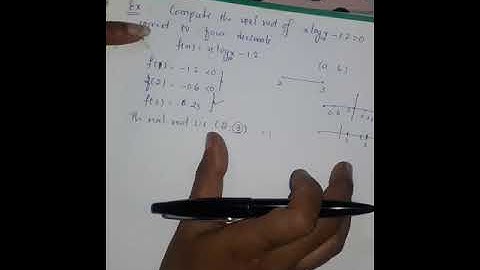 Ex Compute the real root of x log x - 1.2 = 0
correct to four decimals
f(x) = x log x - 1.2
f(1) = -1.2 < 0
(a b)
f(2) = -0.6 < 0
2 3
f(3) = 0.23
The real root (2, 3)